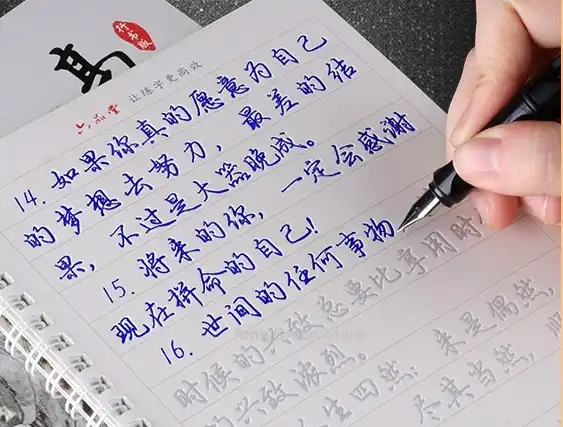 行书版
六品堂 让练字更高效
14. 如果你真的愿意为自己
的梦想去努力，最差的结
果，不过是大器晚成。
15. 将来的你，一定会感谢
现在拼命的自己!
16. 世间的任何事物
总要比享用时
时候的兴致
的兴致浓烈。来是偶然，
尽其当然，顺